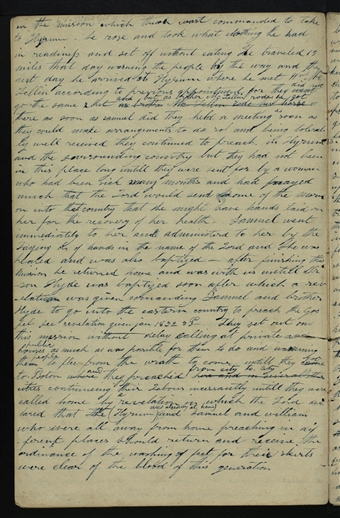 on the mission which that was commanded to take
to Hyrum he rose and took what clothing he had
in readiness and set off without eating he traveled 13
miles that day warning the people by the way and the
next day he arrived at Hyrum where he met
Zellin according to previous appointment for they
go the same
there as soon as samuel did they held a meeting soon as
they could make arrangements to do so and being tolerab
ly well received they continued to preach in Hyrum
and the sorrounding country but they had not been
in this place long until they were sent for by a woman
who had been sick many months and had prayed
much that the Lord would send some of the Mormon
s into that country that she might have hands laid on
her for the recovery of her health Samuel went
immediately to her and administered to her by the
laying on of hands in the name of the Lord and she was
healed and was also baptized — after finishing this
mission he returned home and was with us untill
son Hyde was baptized soon after which a rev
elation was given commanding Samuel and brother
Hyde to go into the eastern country to preach the Gos
pel see revelation given jan 1832 — They set out on
this mission without delay calling at private
public
houses as much as was possible for them to do and warning
the people
them to flee from the wrath to come untill they
to Boston where they preached from city to city
continueing their labour incessantly untill they were
called home by a revelation in which the Lord de
clared that Hyrum and Samuel and william
who were all away from home preaching in dif
ferent places should return and receive the
ordinance of the washing of feet for their skirts
were clear of the blood of this generation